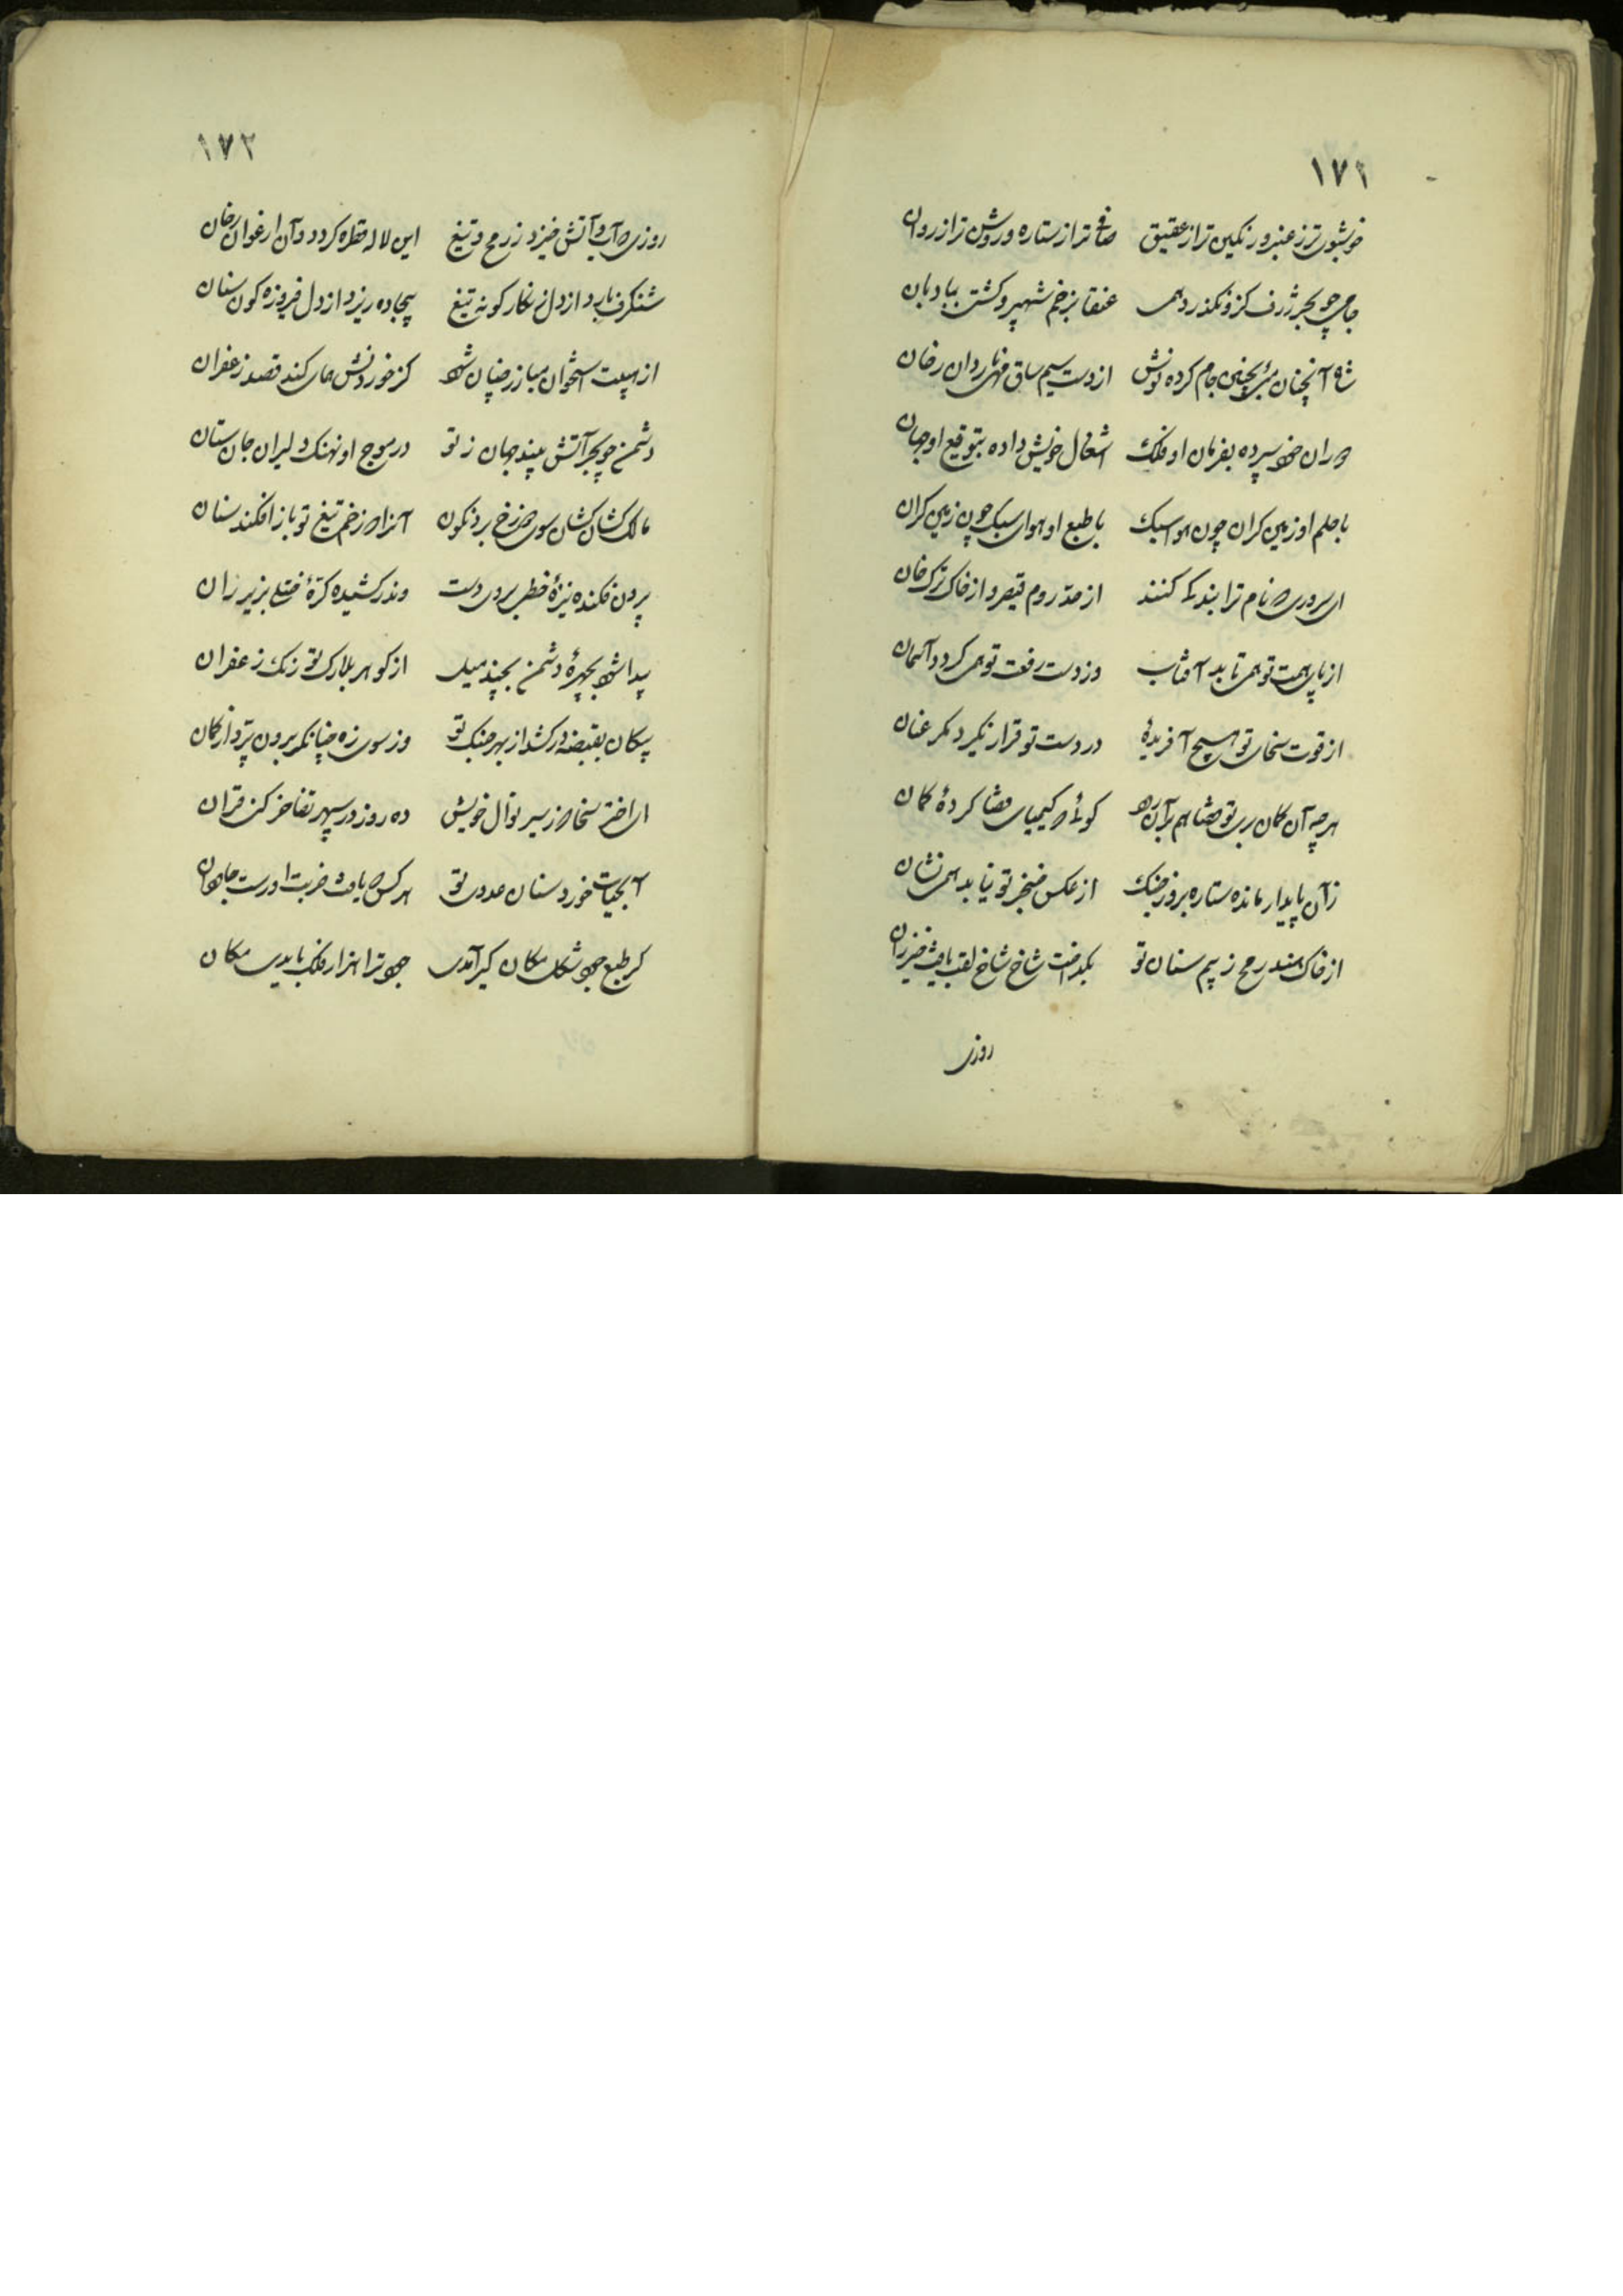 ۱۷۱
خوشبوی‌تر ز عنبر و رنکین‌تر از عقیق صافی‌تر از ستاره و روشن‌تر از روان
جامی چو بحر ژرف کزو نکذرد همی عنقا بزخم شهپر و کشتی ببادبان
شاه آنچنان میی بچنین جام کرده نوش از دست سیم ساق و نار دان رخان
دوران خود سپرده بفرمان او فلک اشغال خویش داده بتوقیع او جهان
با حلم او زمین کران چون هوا سبک با طبع او هوای سبک چون زمین کران
ای سروری که نام ترا بندکی کنند از حد روم قیصر و از خاک ترک خان
از پای همت تو همی تابد آفتاب وز دست رفعت تو همی کردد آسمان
از قوت سخای تو هیچ آفریدهٔ در دست تو قرار نکیرد مکر عنان
هرچه آن کمان بری تو قضا هم بر آن رود کوئی که کیمیای قضا کردهٔ کمان
زآن پایدار مانده ستاره بروز جنک از عکس خنجر تو نیابد همی نشان
از خاک هند رمح ز بیم سنان تو بکداخت شاخ شاخ لقب یافت خیزران
روزی
۱۷۲
روزی که آب و آتش خیزد ز رمح و تیغ این لاله قطره کردد و آن ارغوان رخان
شنکرف بارد از دل زنکار کونه تیغ بیجاده ریزد از دل فیروزه کون سنان
از هیبت استخوان مبارز چنان شود کز خوردنش همای کند قصد زعفران
دشمن چو بحر آتش بیند جهان ز تو در موج او نهنک دلیران جان ستان
مالک کشان کشان سوی دوزخ برد نکون آنرا که زخم تیغ تو باز افکند سنان
بیرون فکنده نیزهٔ خطی بروی دست وندر کشیده کرهٔ ختلی بزیر ران
پیدا شود بچهرهٔ دشمن بچند میل از کوهر بلارک تو رنک زعفران
پیکان بقبضه درکشد از بهر جنک تو وز سوی زه چنانکه برون پرد از کمان
ای اختر سخا که ز سیر نوال خویش ده روز در سپهر تفاخر کنی قران
آبحیات خورد سنان عدوی تو هر کس که یافت ضربت او زیست جاودان
کر طبع جود شکل مکان کیر آمدی جود ترا هزار فلک بایدی مکان